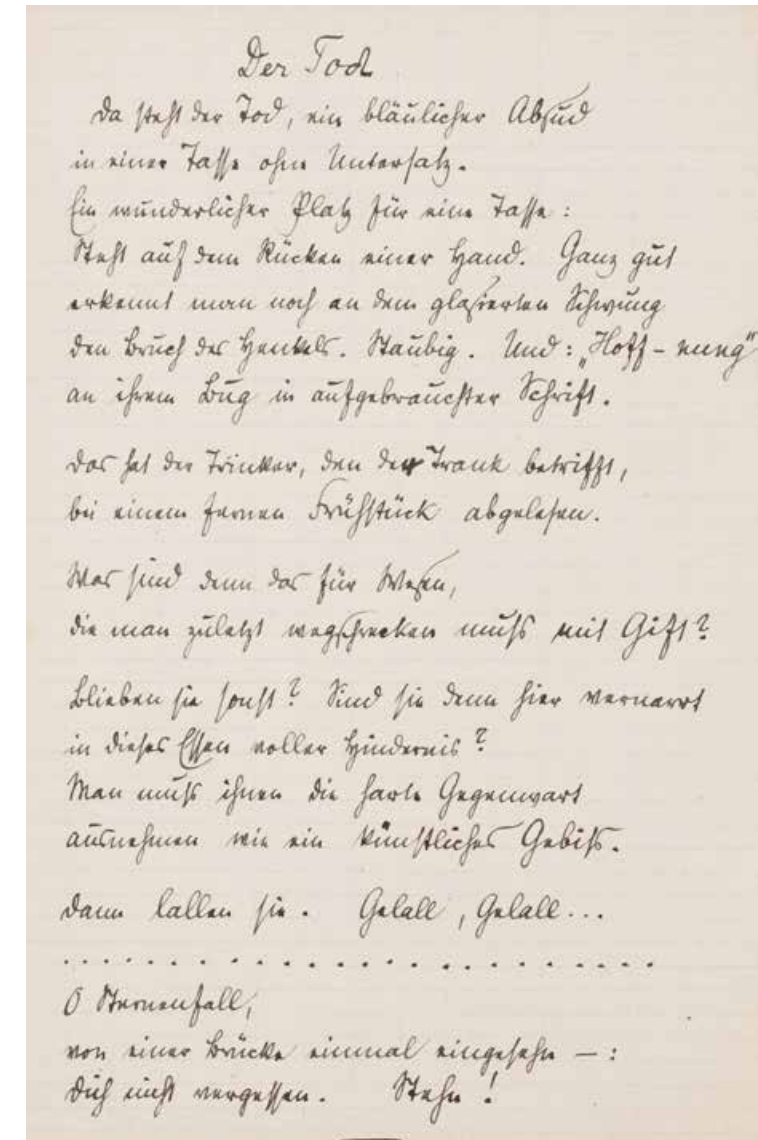 Der Tod
Da steht der Tod, ein bläulicher Absud
in einer Tasse ohne Untersatz.
Ein wunderlicher Platz für eine Tasse:
Steht auf dem Rücken einer Hand. Ganz gut
erkennt man noch an dem glasierten Schwung
den Bruch des Henkels. Staubig. Und: „Hoff-nung"
an ihrem Bug in aufgebrauchter Schrift.
Das hat der Trinker, den der Trank betrifft,
bei einem fernen Frühstück abgelesen.
Was sind denn das für Wesen,
die man zuletzt wegschrecken muſs mit Gift?
Blieben sie sonst? Sind sie denn hier vernarrt
in dieses Essen voller Hindernis?
Man muſs ihnen die harte Gegenwart
ausnehmen wie ein künstliches Gebiſs.
Dann lallen sie. Gelall, Gelall...
. . . . . . . . . . . . . . . . . . . . . . . .
O Sternenfall,
von einer Brücke einmal eingesehn –:
Dich nicht vergessen. Stehn!